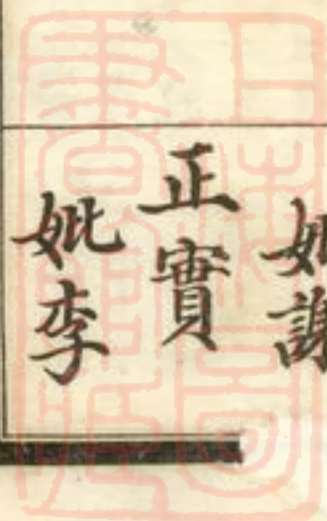 妣謝
正實
妣李